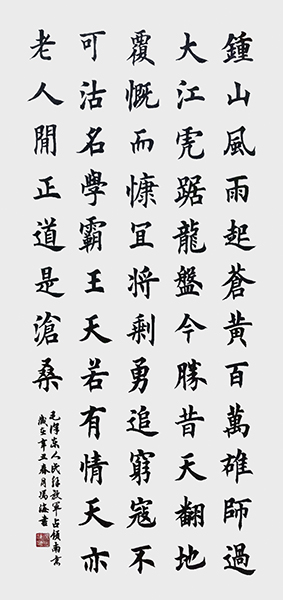 鍾山風雨起蒼黃百萬雄師過
大江虎踞龍盤今勝昔天翻地
覆慨而慷冝將剩勇追窮寇不
可沽名學霸王天若有情天亦
老人閒正道是滄桑
毛澤東人民解放軍占領南京
歲在辛丑春月馮海書